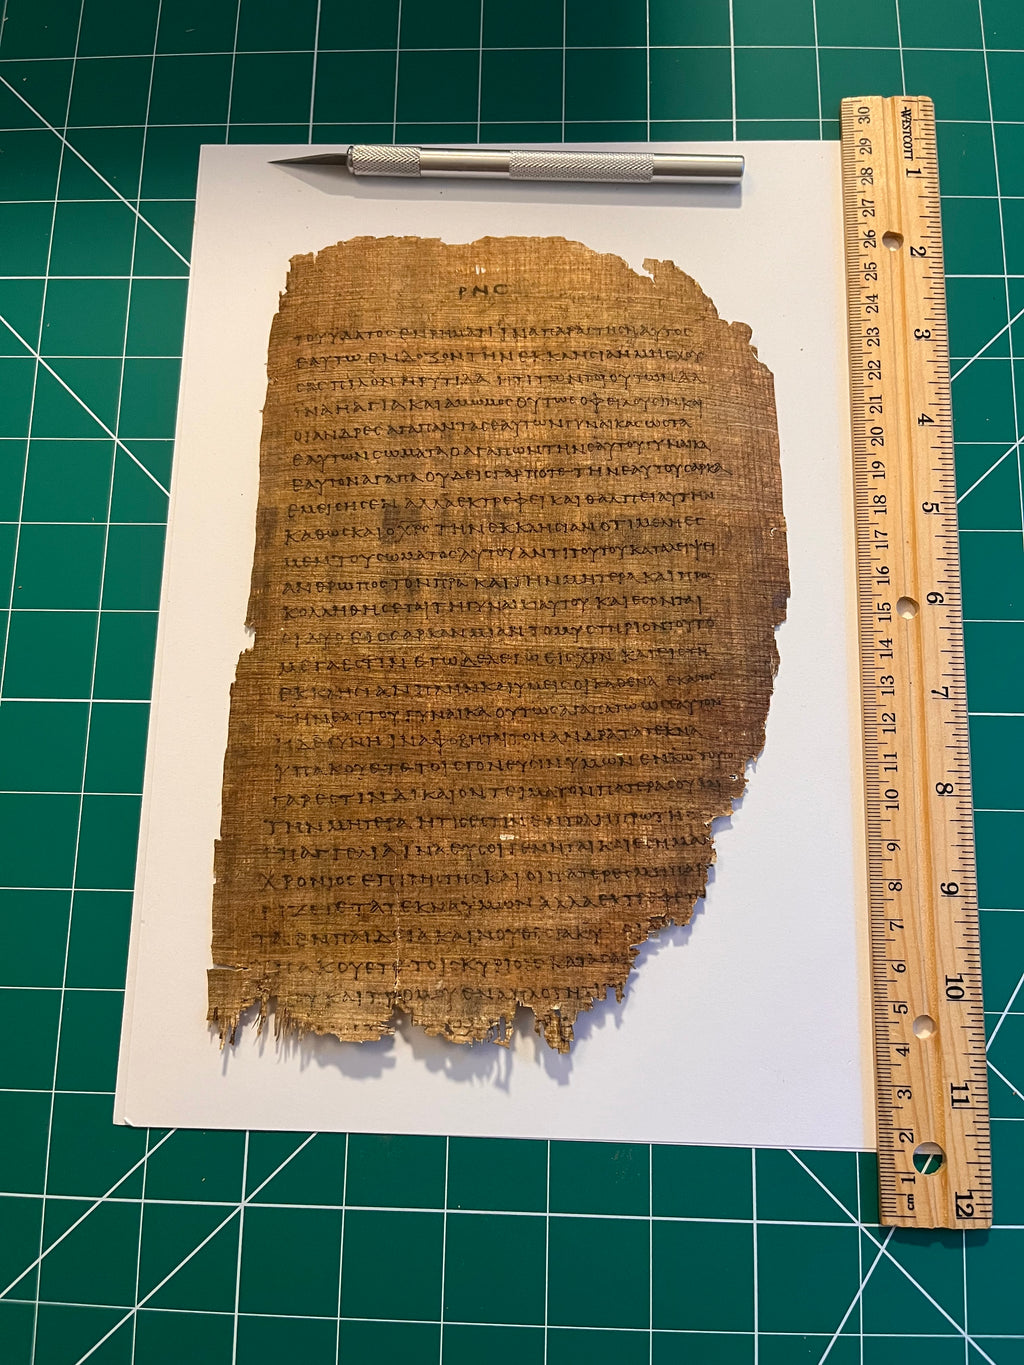 ΡΝϹ
ΤΟΥ ΥΔΑΤΟϹ ΕΝ ΡΗΜΑΤΙ ΙΝΑ ΠΑΡΑϹΤΗϹΗ ΑΥΤΟϹ
ΕΑΥΤΩ ΕΝΔΟΞΟΝ ΤΗΝ ΕΚΚΛΗϹΙΑΝ ΜΗ ΕΧΟΥ
ϹΑϹ ΠΙΛΟΝ Η ΡΥΤΙΔΑ Η ΤΙ ΤΩΝ ΤΟΙΟΥΤΩΝ ΑΛ
ΙΝΑ Η ΑΓΙΑ ΚΑΙ ΑΜΩΜΟϹ ΟΥΤΩϹ ΟΦΕΙΛΟΥϹΙΝ ΚΑΙ
ΟΙ ΑΝΔΡΕϹ ΑΓΑΠΑΝ ΤΑϹ ΕΑΥΤΩΝ ΓΥΝΑΙΚΑϹ ΩϹ ΤΑ
ΕΑΥΤΩΝ ϹΩΜΑΤΑ Ο ΑΓΑΠΩΝ ΤΗΝ ΕΑΥΤΟΥ ΓΥΝΑΙΚΑ
ΕΑΥΤΟΝ ΑΓΑΠΑ ΟΥΔΕΙϹ ΓΑΡ ΠΟΤΕ ΤΗΝ ΕΑΥΤΟΥ ϹΑΡΚΑ
ΕΜΕΙϹΗϹΕΝ ΑΛΛΑ ΕΚΤΡΕΦΕΙ ΚΑΙ ΘΑΛΠΕΙ ΑΥΤΗΝ
ΚΑΘΩϹ ΚΑΙ Ο ΧΡϹ ΤΗΝ ΕΚΚΛΗϹΙΑΝ ΟΤΙ ΜΕΛΗ ΕϹ
ΜΕΝ ΤΟΥ ϹΩΜΑΤΟϹ ΑΥΤΟΥ ΑΝΤΙ ΤΟΥΤΟΥ ΚΑΤΑΛΕΙΨΕΙ
ΑΝΘΡΩΠΟϹ ΤΟΝ ΠΡΑ ΚΑΙ ΤΗΝ ΜΗΤΕΡΑ ΚΑΙ ΠΡΟϹ
ΚΟΛΛΗΘΗϹΕΤΑΙ ΤΗ ΓΥΝΑΙΚΙ ΑΥΤΟΥ ΚΑΙ ΕϹΟΝΤΑΙ
ΟΙ ΔΥΟ ΕΙϹ ϹΑΡΚΑΝ ΜΙΑΝ ΤΟ ΜΥϹΤΗΡΙΟΝ ΤΟΥΤΟ
ΜΕΓΑ ΕϹΤΙΝ ΕΓΩ ΔΕ ΛΕΓΩ ΕΙϹ ΧΡΝ ΚΑΙ ΕΙϹ ΤΗΝ
ΕΚΚΛΗϹΙΑΝ ΠΛΗΝ ΚΑΙ ΥΜΕΙϹ ΟΙ ΚΑΘ ΕΝΑ ΕΚΑϹΤΟϹ
ΤΗΝ ΕΑΥΤΟΥ ΓΥΝΑΙΚΑ ΟΥΤΩϹ ΑΓΑΠΑΤΩ ΩϹ ΕΑΥΤΟΝ
Η ΔΕ ΓΥΝΗ ΙΝΑ ΦΟΒΗΤΑΙ ΤΟΝ ΑΝΔΡΑ ΤΑ ΤΕΚΝΑ
ΥΠΑΚΟΥΕΤΕ ΤΟΙϹ ΓΟΝΕΥϹΙΝ ΥΜΩΝ ΕΝ ΚΩ ΤΟΥΤΟ
ΓΑΡ ΕϹΤΙΝ ΔΙΚΑΙΟΝ ΤΕΙΜΑ ΤΟΝ ΠΑΤΕΡΑ ϹΟΥ ΚΑΙ
ΤΗΝ ΜΗΤΕΡΑ ΗΤΙϹ ΕϹΤΙΝ ΕΝΤΟΛΗ ΠΡΩΤΗ
ΕΠΑΓΓΕΛΙΑ ΙΝΑ ΕΥ ϹΟΙ ΓΕΝΗΤΑΙ ΚΑΙ ΕϹΗ ΜΑΚ
ΧΡΟΝΙΟϹ ΕΠΙ ΤΗϹ ΓΗϹ ΚΑΙ ΟΙ ΠΑΤΕΡΕϹ ΜΗ ΠΑΡ
ΡΓΙΖΕΤΕ ΤΑ ΤΕΚΝΑ ΥΜΩΝ ΑΛΛΑ ΕΚΤΡΕΦΕΤΕ
ΤΑ ΕΝ ΠΑΙΔΕΙΑ ΚΑΙ ΝΟΥΘΕϹΙΑ ΚΥ
ΥΠΑΚΟΥΕΤΕ ΤΟΙϹ ΚΥΡΙΟΙϹ ΚΑΤΑ ϹΑΡ
ΟΥ ΚΑΙ ΤΡΟΜΟΥ ΕΝ ΑΠΛΟΤΗΤΙ
WESTCOTT
1 2 3 4 5 6 7 8 9 10 11 12
30 29 28 27 26 25 24 23 22 21 20 19 18 17 16 15 14 13 12 11 10 9 8 7 6 5 4 3 2 1 cm